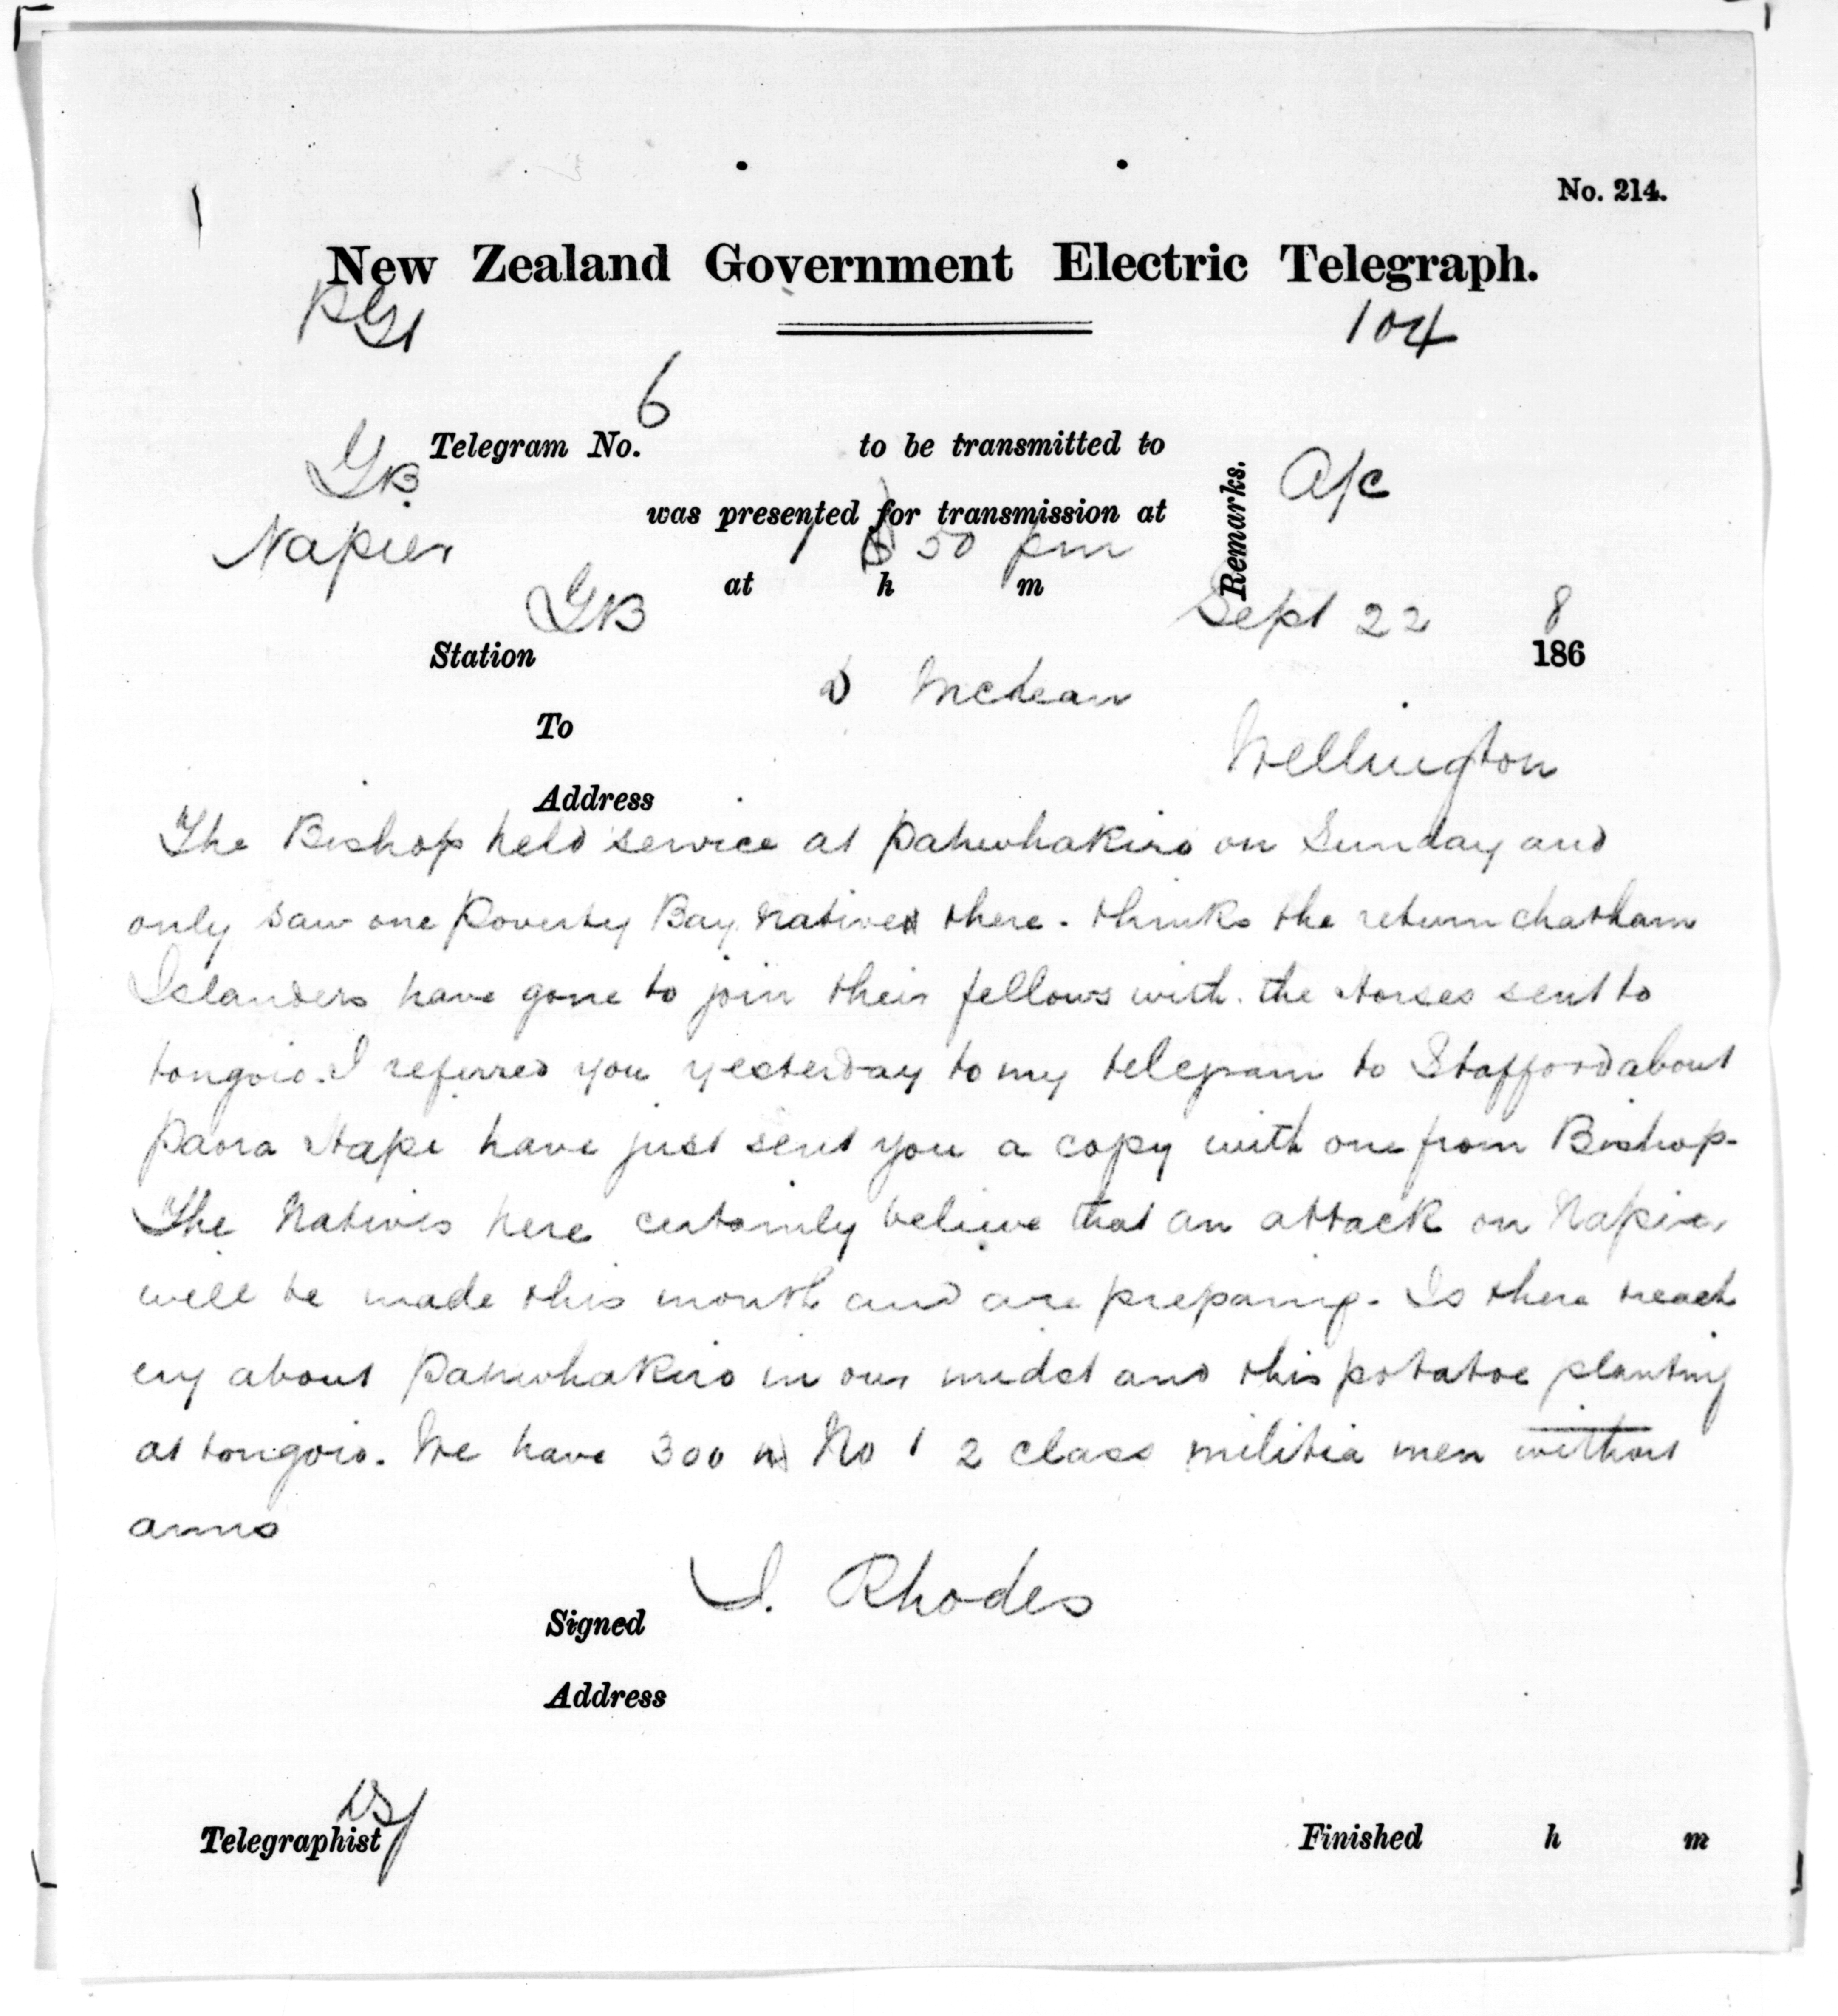 No. 214.
New Zealand Government Electric Telegraph.
104
6
Telegram No. to be transmitted to
GB
was presented for transmission at
Remarks. A/c
Napier
1 50 pm
at h m
GB
Sept 22 8
Station 186
D McLean
To
Wellington
Address
The Bishop held service at Pahwhakiro on Sunday and
only saw one Poverty Bay native there. thinks the return chatham
Islanders have gone to join their fellows with the Horses sent to
tongoio. I referred you yesterday to my telegram to Stafford about
Paora Hape have just sent you a copy with one from Bishop.
The Natives here certainly believe that an attack on Napier
will be made this month and are preparing. Is there treach
ery about Pahwhakiro in our midst and this potatoe planting
at tongoio. We have 300 No 1 2 class militia men without
arms
J. Rhodes
Signed
Address
Telegraphist
Finished h m